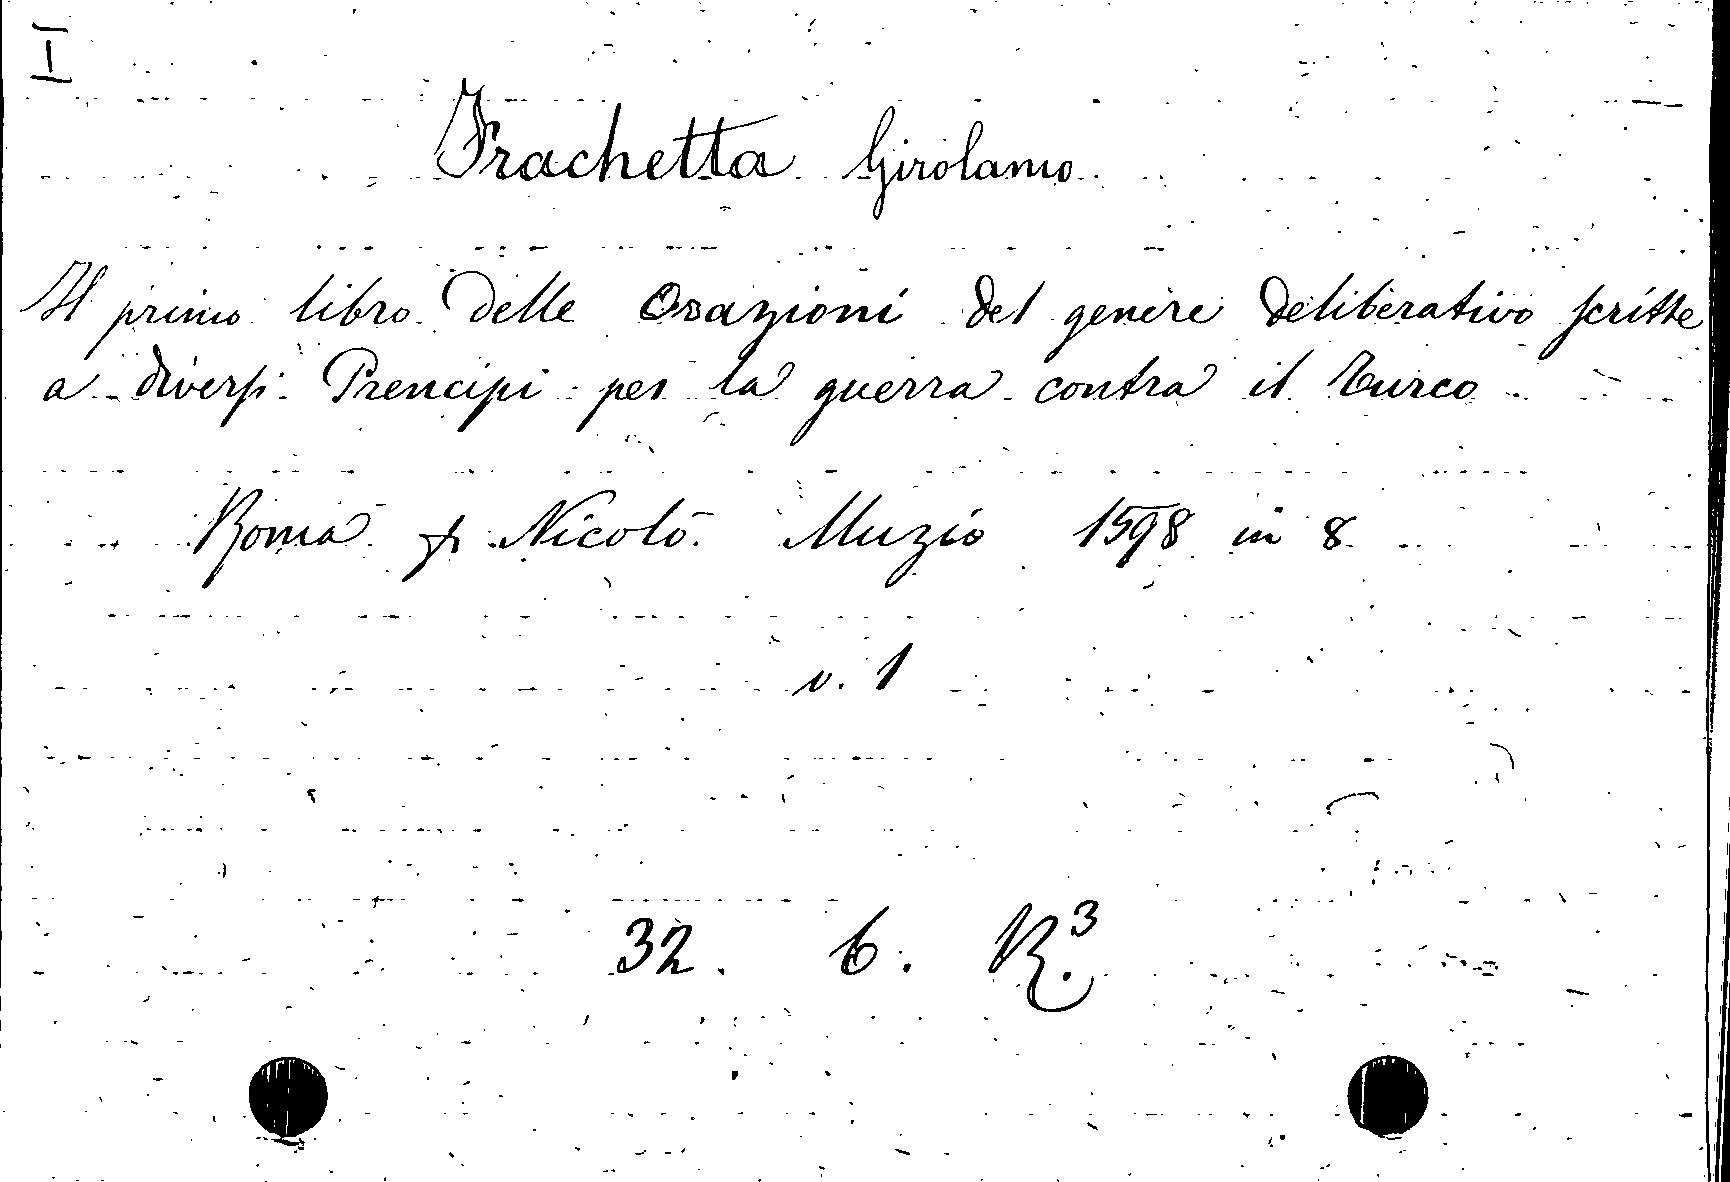 I
Frachetta Girolamo
Il primo libro delle Orazioni del genere deliberativo scritte
a diversi Prencipi per la guerra contra il Turco
Roma p. Nicolò Muzio 1598 in 8
v. 1
32. 6. R.3